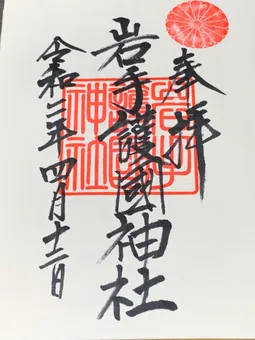 奉拝
岩手護國神社
令和二年四月十二日
岩手護國神社